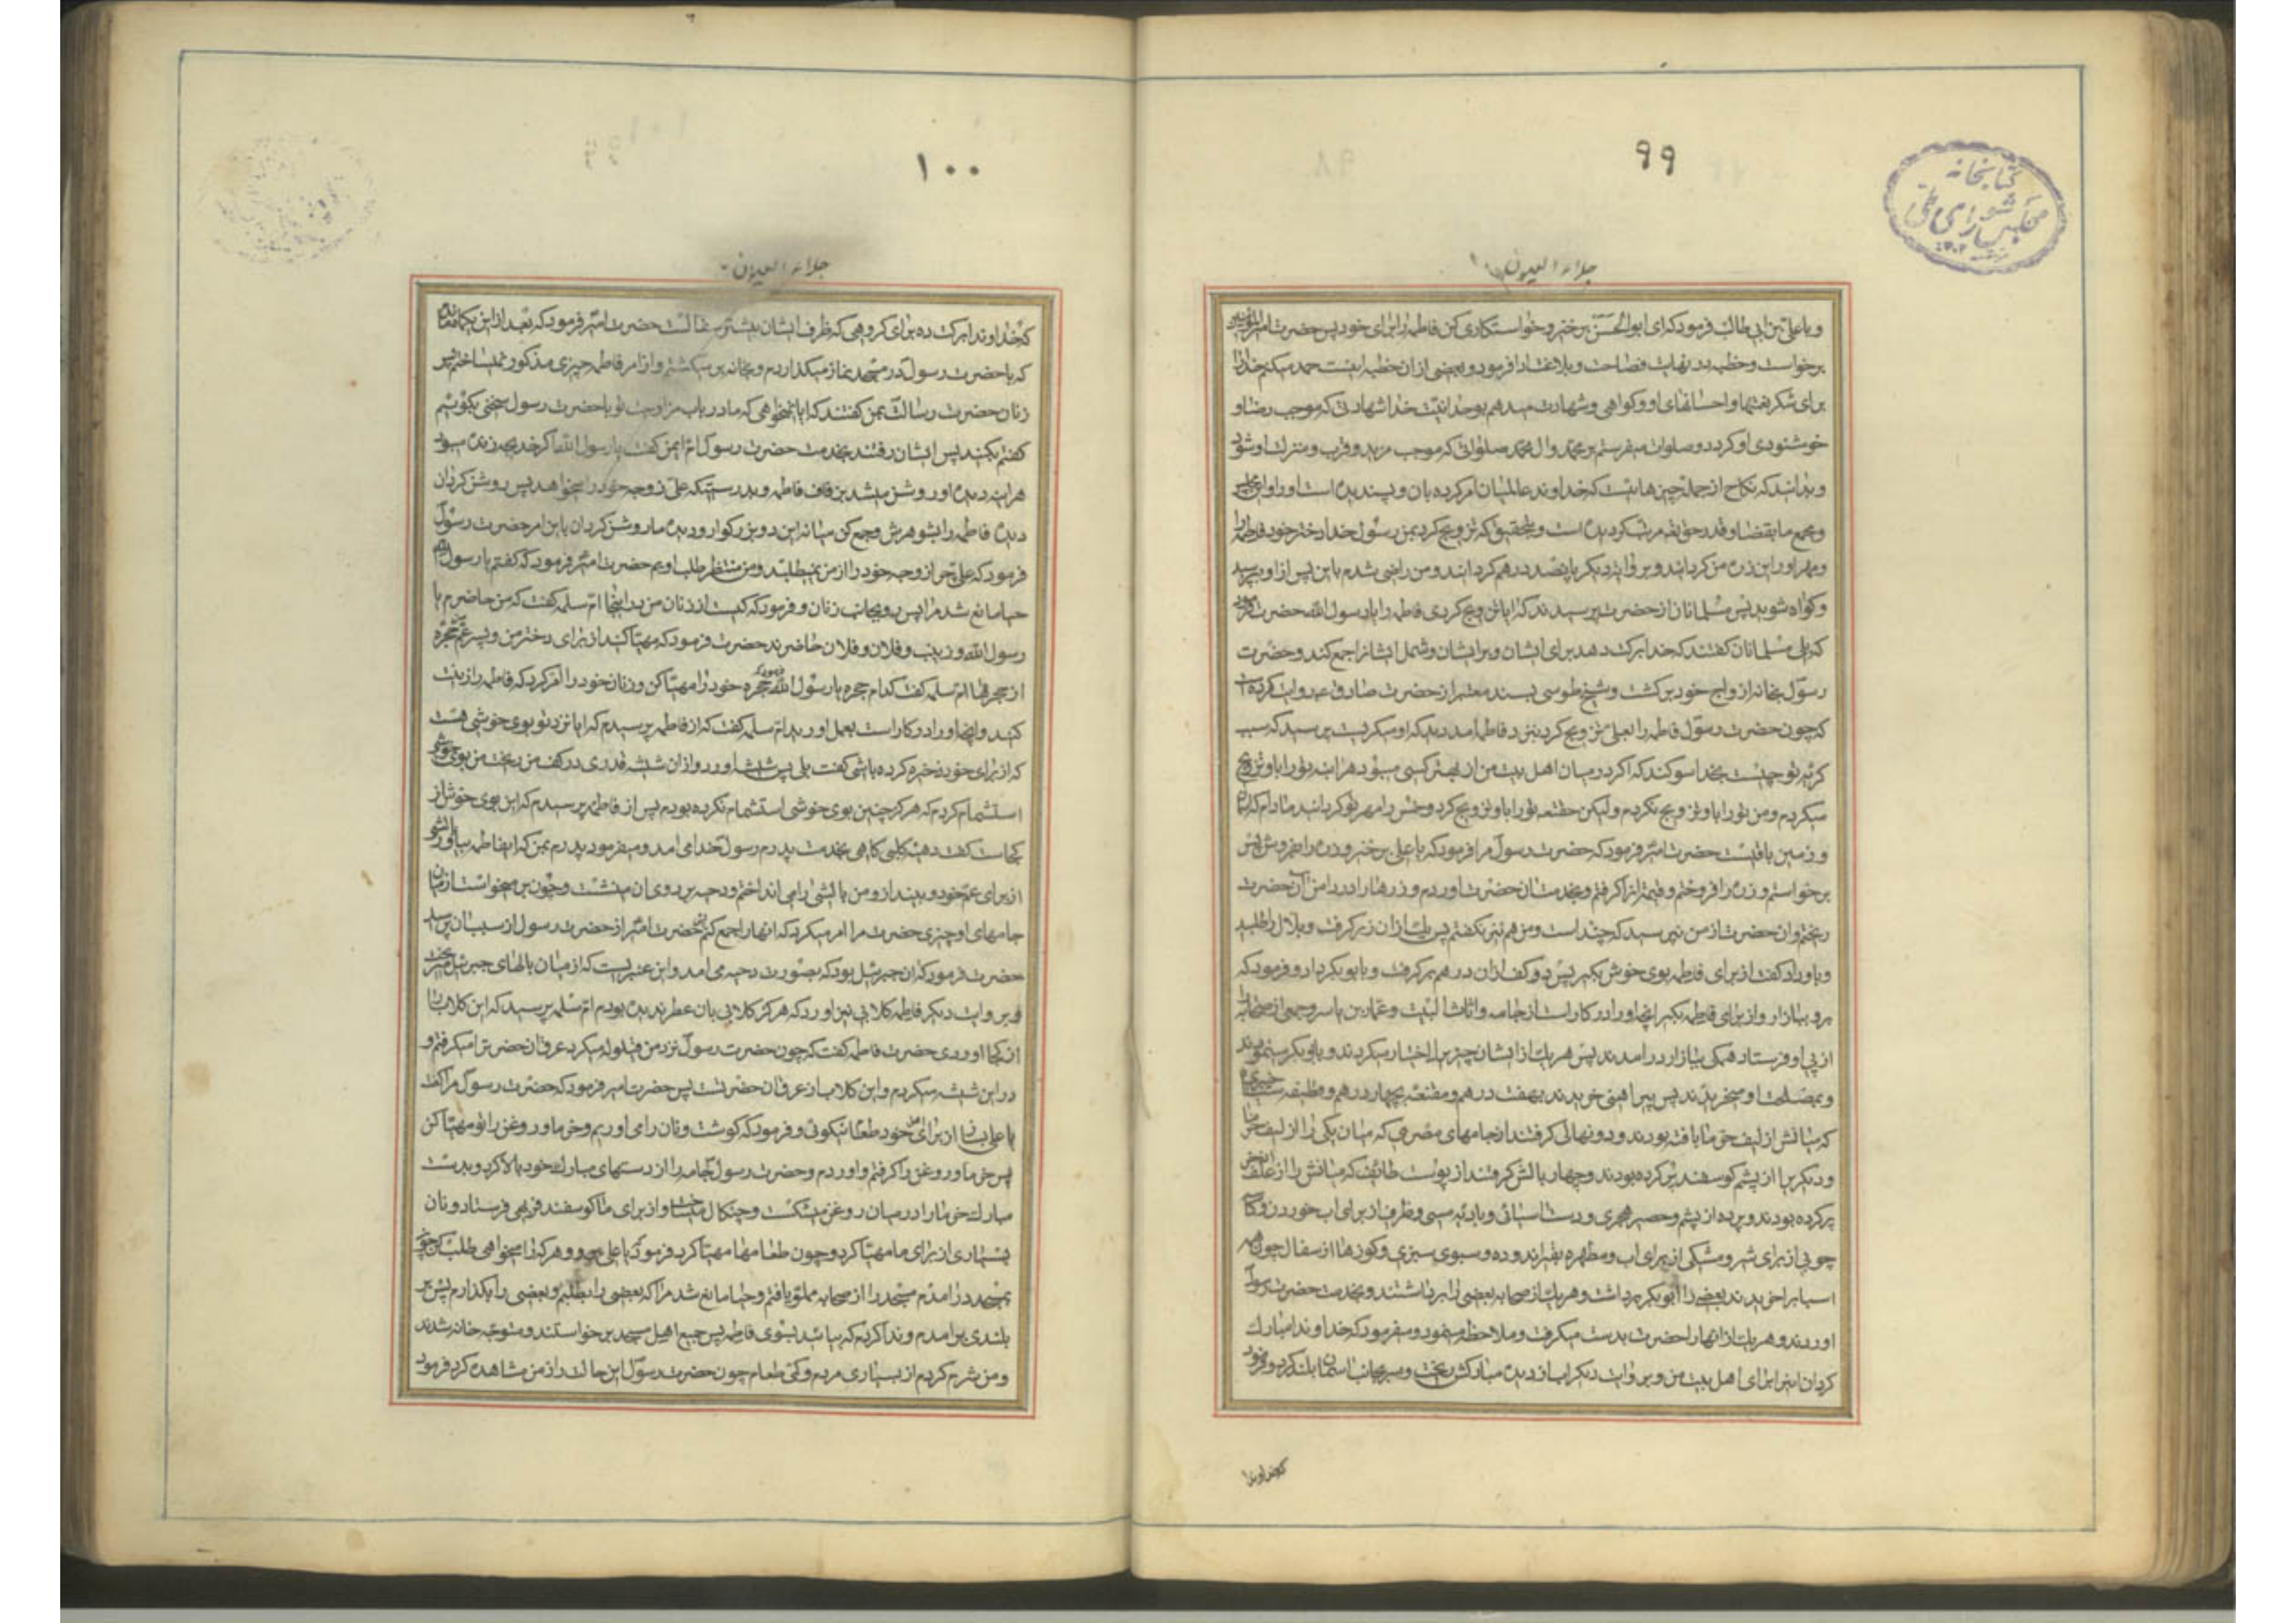 ۹۹
کتابخانه
مجلس شورای ملی
جلاء العیون
و با علی بن ابی طالب فرمود که ای ابوالحسن برخیز و خواستکاری کن فاطمه را برای خود پس حضرت امیرالمؤمنین
برخواست و خطبه در نهایت فصاحت و بلاغت ادا فرمود و بعضی از ان خطبه اینست حمد میکنم خدا را
برای شکر نعمتها و احسانهای او و کواهی و شهادت میدهم بوحدانیت خدا شهادتی که موجب رضا و
خوشنودی او کردد و صلوات میفرستم بر محمد و ال محمد صلواتی که موجب مزید و قرب و منزلت او شود
و بدانید که نکاح از جمله چیزهائیست که خداوند عالمیان امر کرده بان و پسندیده است او را و این مجلس
و مجمع ما بقضا و قدر حق تعالی مرتب کردیده است و بتحقیق که تزویج کرد بمن رسول خدا دختر خود فاطمه را
و مهر او را این زره من کردانید و بروایت دیکر پانصد درهم کردانید و من راضی شدم باین پس از او بپرسید
و کواه شوید پس مسلمانان از حضرت پرسیدند که ایا تزویج کردی فاطمه را یا رسول الله حضرت فرمود
که بلی مسلمانان کفتند که خدا برکت دهد برای ایشان و بر ایشان و شمل ایشانرا جمع کند و حضرت
رسول بخانه ازواج خود برکشت و شیخ طوسی بسند معتبر از حضرت صادق ع روایت کرده است
که چون حضرت رسول فاطمه را بعلی تزویج کرد بنزد فاطمه امد دید که او میکریست پرسید که سبب
کریه تو چیست بخدا سوکند که اکر در میان اهل بیت من از او بهتر کسی میبود هراینه تو را باو تزویج
میکردم و من تو را باو تزویج نکردم ولیکن حقتعالی تو را باو تزویج کرد و خمس را مهر تو کردانید مادام که اسمان
و زمین باقیست حضرت امیر فرمود که حضرت رسول مرا فرمود که یا علی برخیز و زره را بفروش پس
برخواستم و زره را فروختم و قیمت انرا کرفتم و بخدمت ان حضرت اوردم و زرها را در دامن ان حضرت
ریختم و ان حضرت از من نپرسید که چند است و من هم نیز نکفتم پس یک کف از ان زر کرفت و بلال را طلبید
و باو داد کفت از برای فاطمه بوی خوش بکیر پس دو کف از ان درهم برکرفت و بابوبکر داد و فرمود که
برو ببازار و از برای فاطمه بکیر انچه او را در کار است از جامه و اثاث البیت و عمار بن یاسر و جمعی از صحابه را
از پی او فرستاد همکی ببازار درامدند پس هر یک از ایشان چیزیرا اختیار میکردند و بابوبکر مینمودند
و بمصلحت او میخریدند پس پیراهنی خریدند بهفت درهم و مقنعه بچهار درهم و قطیفه سیاه خیبری
که میانش از لیف خرما بافته بودند و دو نهالی کرفتند از جامهای مصری که میان یکی را از لیف خرما
و دیکریرا از پشم کوسفند پر کرده بودند و چهار بالش کرفتند از پوست طائف که میانش را از علف اذخر
پر کرده بودند و پرده از پشم و حصیر هجری و دست اسیائی و بادیه مسی و ظرف از برای اب خوردن و کاسه
چوبی از برای شیر و مشکی از برای اب و مطهره بقیر اندوده و سبوی سبزی و کوزها از سفال چون همه
اسبابرا خریدند بعضی را ابوبکر برداشت و هر یک از صحابه بعضی را برداشتند و بخدمت حضرت رسول
اوردند و هر یک از انها را حضرت بدست میکرفت و ملاحظه مینمود و میفرمود که خداوندا مبارک
کردان اینرا برای اهل بیت من و بروایت دیکر اب از دیده مبارکش ریخت و سر بجانب اسمان بلند کرد و فرمود
کخداوندا
۱۰۰
جلاء العیون
کخداوندا برکت ده برای کروهی که ظرف ایشان بیشتر سفالست حضرت امیر فرمود که بعد از این یکماه ماندم
که با حضرت رسول در مسجد نماز میکذاردم و بخانه برمیکشتم و از امر فاطمه چیزی مذکور نمیساختم پس
زنان حضرت رسالت بمن کفتند که ایا نمیخواهی که ما در باب مزاوجت تو با حضرت رسول سخنی بکوئیم
کفتم بکنید پس ایشان رفتند بخدمت حضرت رسول ام ایمن کفت یا رسول الله اکر خدیجه زنده میبود
هراینه دیده او روشن میشد بزفاف فاطمه و بدرستیکه علی زوجه خود را میخواهد پس روشن کردان
دیده فاطمه را بشوهرش و جمع کن میانه این دو بزرکوار و دیده ما را روشن کردان باین امر حضرت رسول
فرمود که علی چرا زوجه خود را از من نمیطلبد و من منتظر طلب اویم حضرت امیر فرمود که کفتم یا رسول الله
حیا مانع شد مرا پس رو بجانب زنان و فرمود که کیست از زنان من در اینجا ام سلمه کفت که من حاضرم یا
رسول الله و زینب و فلان و فلان حاضرند حضرت فرمود که مهیا کنید از برای دختر من و پسر عم من حجره
از حجرها ام سلمه کفت کدام حجره یا رسول الله فرمود که حجره خود را مهیا کن و زنان خود را امر کرد که فاطمه را زینت
کنید و انچه او را در کار است بعمل اورید ام سلمه کفت که از فاطمه پرسیدم که ایا نزد تو بوی خوشی هست
که از برای خود ذخیره کرده باشی کفت بلی پس شیشه اورد و از ان شیشه قدری در کف من ریخت من بوی خوشی
استشمام کردم که هرکز چنین بوی خوشی استشمام نکرده بودم پس از فاطمه پرسیدم که این بوی خوش از
کجاست کفت دحیه کلبی کاهی بخدمت پدرم رسول خدا می امد و میفرمود پدرم بمن که ایفاطمه بیاور بالشی
از برای عم خود و بینداز و من بالشی را می انداختم و دحیه بر روی ان مینشست و چون برمیخواست از میان
جامهای او چیزی میریخت حضرت مرا امر میکرد که انها را جمع کنم حضرت امیر از حضرت رسول از سبب ان پرسید
حضرت فرمود که ان جبرئیل بود که بصورت دحیه می امد و این عنبریست که از میان بالهای جبرئیل میریخت
و بروایت دیکر فاطمه کلابی نیز اورد که هرکز کلابی بان عطر ندیده بودم ام سلمه پرسید که این کلاب را
از کجا اوردی حضرت فاطمه کفت که چون حضرت رسول نزد من قیلوله میکرد عرق ان حضرت را میکرفتم و
در این شیشه میکردم و این کلاب از عرق ان حضرتست پس حضرت امیر فرمود که حضرت رسول مرا کفت
یا علی بساز از برای اهل خود طعام نیکوئی و فرمود که کوشت و نان را می اوریم و خرما و روغن را تو مهیا کن
پس خرما و روغن را کرفتم و اوردم و حضرت رسول جامه را از دستهای مبارک خود بالا کرد و بدست
مبارک خرما را در میان روغن میشکست و چنکال میساخت و از برای ما کوسفند فربهی فرستاد و نان
بسیاری از برای ما مهیا کرد و چون طعامها مهیا کرد فرمود که یا علی برو و هر که را میخواهی طلب کن چون
بمسجد درامدم مسجد را از صحابه مملو یافتم و حیا مانع شد مرا که بعضی را بطلبم و بعضی را بکذارم پس بر
بلندی برامدم و ندا کردم که بیائید بسوی فاطمه پس جمیع اهل مسجد برخواستند و متوجه خانه شدند
و من شرم کردم از بسیاری مردم و کمی طعام چون حضرت رسول این حالت را از من مشاهده کرد فرمود